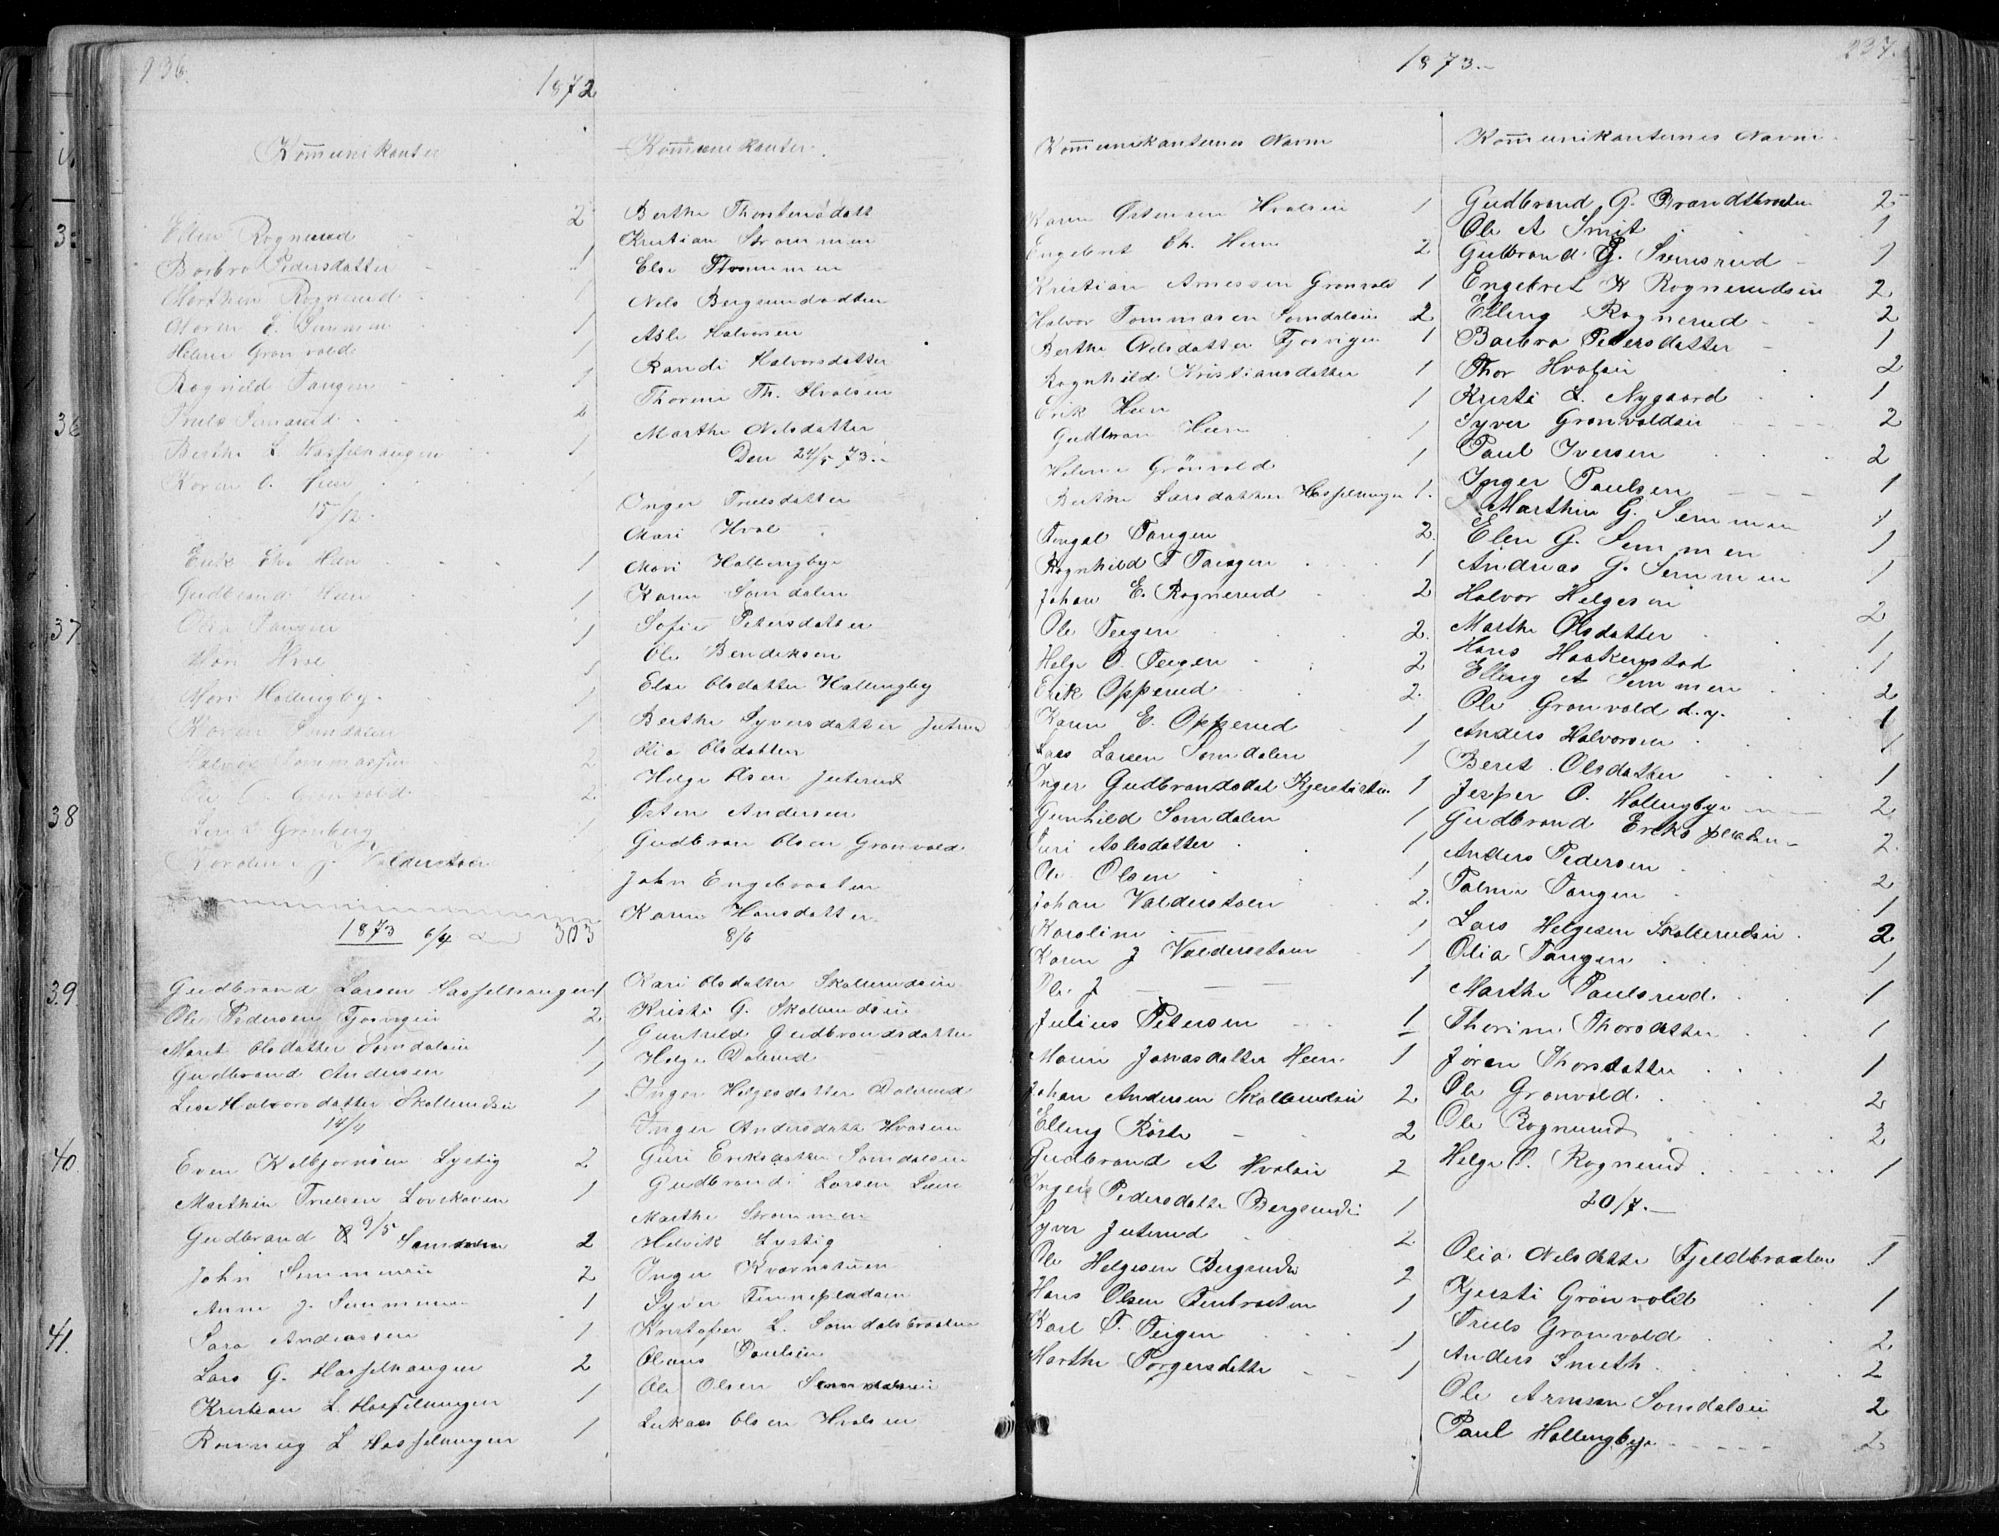 236.
1872
Kommunikanter
Elen Rognerud 2
Barbro Pedersdatter 1
Marthea Rognerud 1
Maren E. 1
Helene Grønvold 1
Ragnild Tangen 1
Truls 2
Berthe L Hasselhaugen 1
Karen O. 1
15/12.
Erik Heen 1
Gudbrand Heen 1
Olia Tangen 1
1
Mari Hallingby 1
Karen Somdalen 1
Halvor Tommassen 2
Ole O. Grønvold 2
Grønberg 1
Karoline J. Valderstoen
1873 6/4 303
Gudbrand Larsen Hasselhaugen 1
Ole Pedersen Fjosvigen 2
Marit Olsdatter Somdalen 1
Gudbrand Andersen 1
Lise Halvorsdatter Skollerudsei 1
14/4
Even Kolbjørnsen Lystig 2
Marthin Trulsen Lovskoven 1
9/5
Gudbrand Somdalen 2
John Semmensei 2
Anne J. Semmensei 1
Sara Andreassen 1
Lars G. Hasselhaugen 2
Kristian L. Hasselhaugen 1
Rønnaug L Hasselhaugen 1
Kommunikanter
Berthe Thorstensdatt
Kristian Strømmen
Else Strømmen
Nils Bergsundodden
Asle Halvorsen
Randi Halvorsdatter
Thorine Th. Hvalsen
Marthe Nilsdatter
Den 24/5 73.-
Inger Trulsdatter
Mari Hval
Mari Hallingbye
Karen Somdalen
Sofie Petersdatter
Ole Bendiksen
Else Olsdatter Hallingby
Berthe Syversdatter Juterud
Olia Olsdatter
Helge Olsen Juterud
Østen Andersen
Gudbran Olsen Grønvold
John Engebraaten
Karen Hansdatter
8/6
Kari Olsdatter Skollerudsein
Kristi G. Skollerudsein
Gunhild Gudbrandsdatter
Helge Dalerud
Inger Helgesdatter Dalerud
Inger Andersdatt Hvalsein
Guri Eriksdatter Somdalsein
Gudbrand Larsen Lien
Marthe Strømmen
Helvik Lystig
Inger Kværnstuen
Syver Finnepladsen
Kristofer L. Somdalsbraaten
Olaus Paulsen
Ole Olsen Somdalsei
Lukas Olsen Hvalsen
1873.-
237.
Kommunikanternes Navn
Karen Østensen Hvalsein 1
Engebret Ch. Heen 2
Kristian Arnessen Grønvold 1
Halvor Tommasen Somdalsei 2
Berthe Nilsdatter Fjosvigen 1
Ragnhild Kristiansdatter 1
Erik Heen 1
Gudbran Heen 1
Helene Grønvold 1
Berthe Larsdatter Hasselhaugen 1.
Tingal Tangen 2.
Ragnhild T Tangen 1
Johan E. Rognerud 2
Ole Teigen 2.
Helge O. Teigen 2
Erik Opperud 2.
Karen E. Opperud 1
Lars Larsen Somdalen 1
Inger Gudbrandsdat Kjerstisten 1
Gunhild Somdalen 1
Turi Aslesdatter 1
Ole Olsen 1
Johan Valderstoen 2.
Karoline 1
Karen J Valderstoen 1
Ole J — — — 1
Julius Petersen 1
Maren Jonasdatter Heen 1
Johan Andersen Skollerudsei 2
Elling Røste 2
Gudbrand A Hvalsein 2
Inger Pedersdatter Bergsundei 1
Syver Juterud 2
Ole Helgesen Bergsundei 2
Hans Olsen Benbraaten 1
Karl T. Teigen 1
Marthe Torgersdatter 1
Kommunikanternes Navn
Gudbrand G. Brandtbraaten 2
Ole A Smit 1
Gulbrand G. Svensrud 1
Engebret K Rognerudsein 2
Elling Rognerud 2
Barbro Petersdatter 1
Thor Hvalsei 2
Kristi L. Nygaard 1
Syver Grønvoldsei 2
Paul Iversen 2
Inger Paulsen 1
Marthin G. Semmen 1
Elen G. Semmen 1
Andreas G. Semmen 1
Halvor Helgesen 2
Marthe Olsdatter 1
Hans Haakenstad 1
Elling A Semmen 2
Ole Grønvold d.y. 1
Anders Halvorsen 1
Beret Olsdatter 1
Jesper O. Hallingbye 2
Gudbrand Erikspladsen 2
Anders Pedersen 2
Tolme Tangen 1
Lars Helgesen Skollerudsei 2
Olia Tangen 1
Marthe Paulsrud 1
Thorine Thorsdatter 1
Jøren Thorsdatter 1
Ole Grønvold 2
Ole Rognerud 2
Helge O. Rognerud 1
20/7.-
Olia Nilsdatter Fjeldbraaten 1
Kjersti Grønvold 1
Truls Grønvold 2
Anders Smith 2
Ole Arnesen Somdalsei 2
Paul Hallingbye 2
36
37
38
39
40.
41.